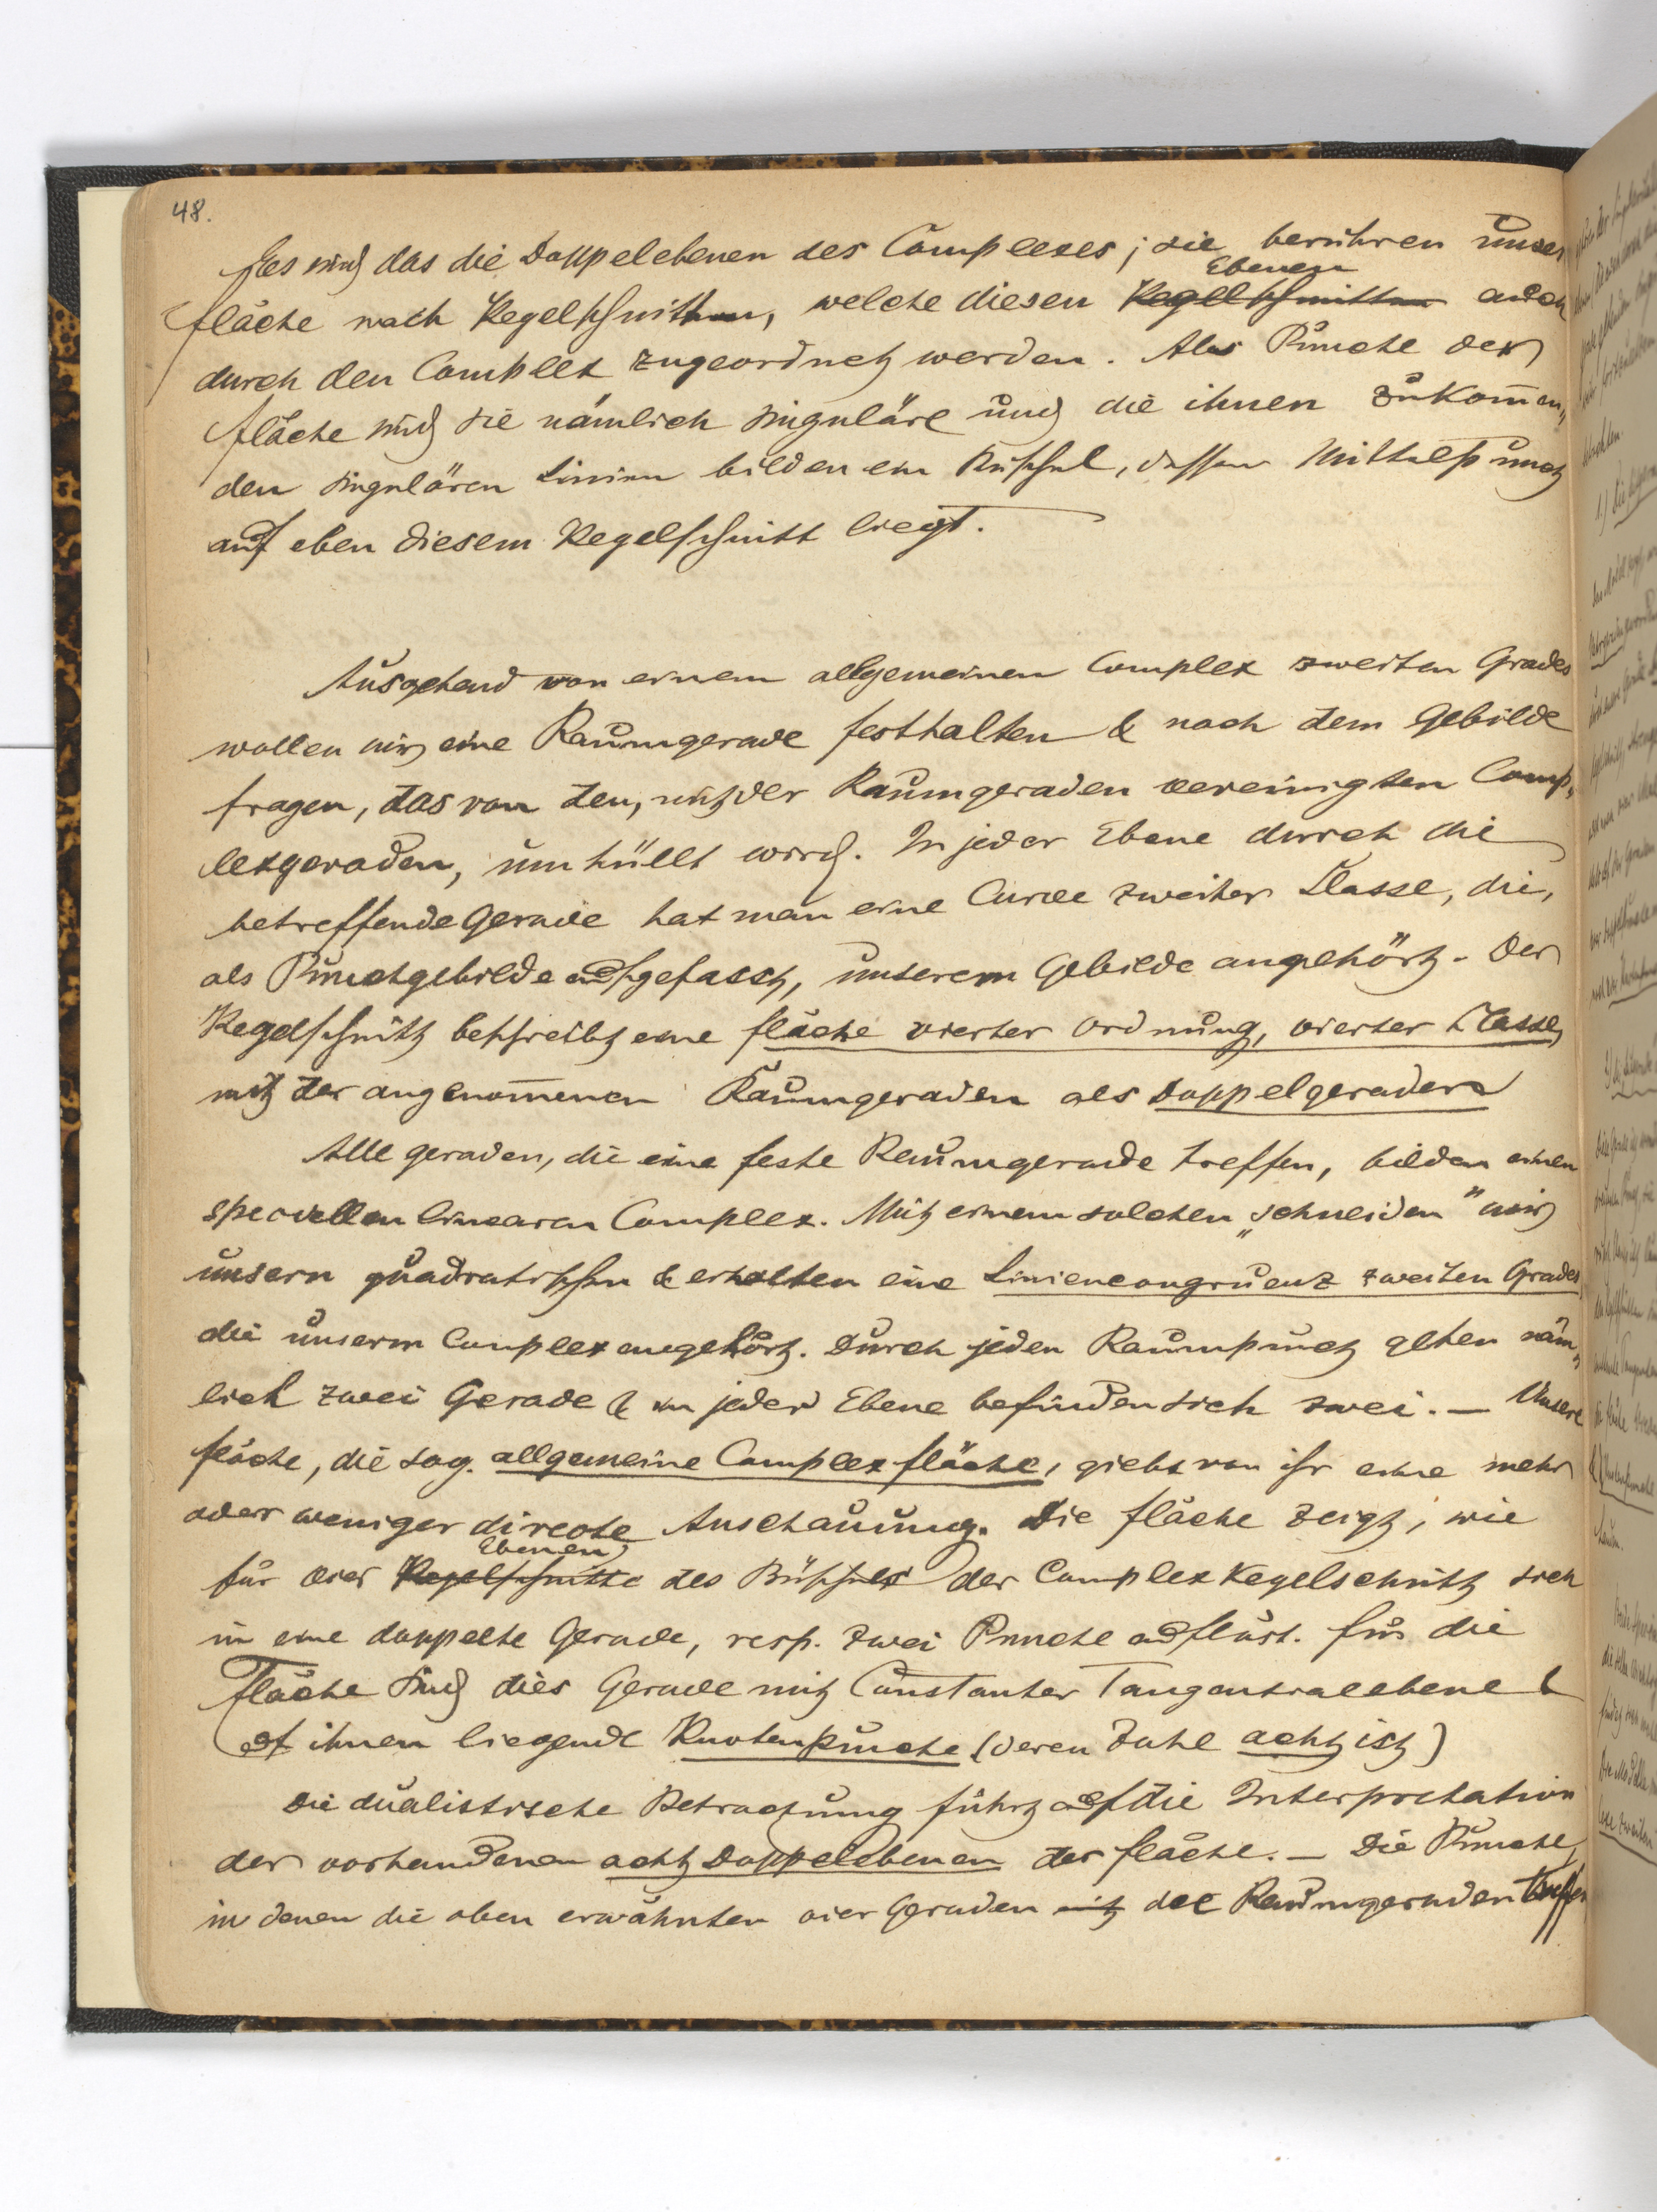 48.
Es sind das die Doppelebenen des Complexes; sie berühren unsere
Ebenen
Fläche nach Kegelschnitten, welche diesen Kegelschnitten auch
durch den Complex zugeordnet werden. Als Puncte der
Fläche sind sie nämlich singuläre und die ihnen zukom̅en„
den singulären Linien bilden ein Büschel, dessen Mittelpunct
auf eben diesem Kegelschnitt liegt.
Ausgehend von einem allgemeinen Complex zweiten Grades
wollen wir eine Raumgerade festhalten & nach dem Gebilde
fragen, das von den, mit der Raumgeraden vereinigten Comp„
lexgeraden, umhüllt wird. In jeder Ebene durch die
betreffende Gerade hat man eine Curve zweiter Classe, die,
als Punctgebilde aufgefasst, unserem Gebilde angehört. Der
Kegelschnitt beschreibt eine Fläche vierter Ordnung, vierter Classe,
mit der angenom̅enen Raumgeraden als Doppelgeraden
Alle Geraden, die eine feste Raumgerade treffen, bilden einen
speciellen linearen Complex. Mit einem solchen „schneiden" wir
unsern quadratischen & erhalten eine Liniencongruenz zweiten Grades
die unserm Complex angehört. Durch jeden Raumpunct gehen näm„
lich zwei Gerade & in jeder Ebene befinden sich zwei. — Unsere
Fläche, die sog. allgemeine Complexfläche, giebt von ihr eine mehr
oder weniger directe Anschauung. Die Fläche zeigt, wie
Ebenen
für vier Kegelschnitte des Büschels der Complexkegelschnitt sich
in eine doppelte Gerade, resp. zwei Puncte auflöst. Für die
Fläche sind dies Gerade mit constanter Tangentialebene &
auf ihnen liegende Knotenpuncte (deren Zahl acht ist)
Die dualistische Betrachtung führt auf die Interpretation
der vorhandenen acht Doppelebenen der Fläche. — Die Puncte,
in denen die oben erwähnten vier Geraden mit der Raumgeraden treffen